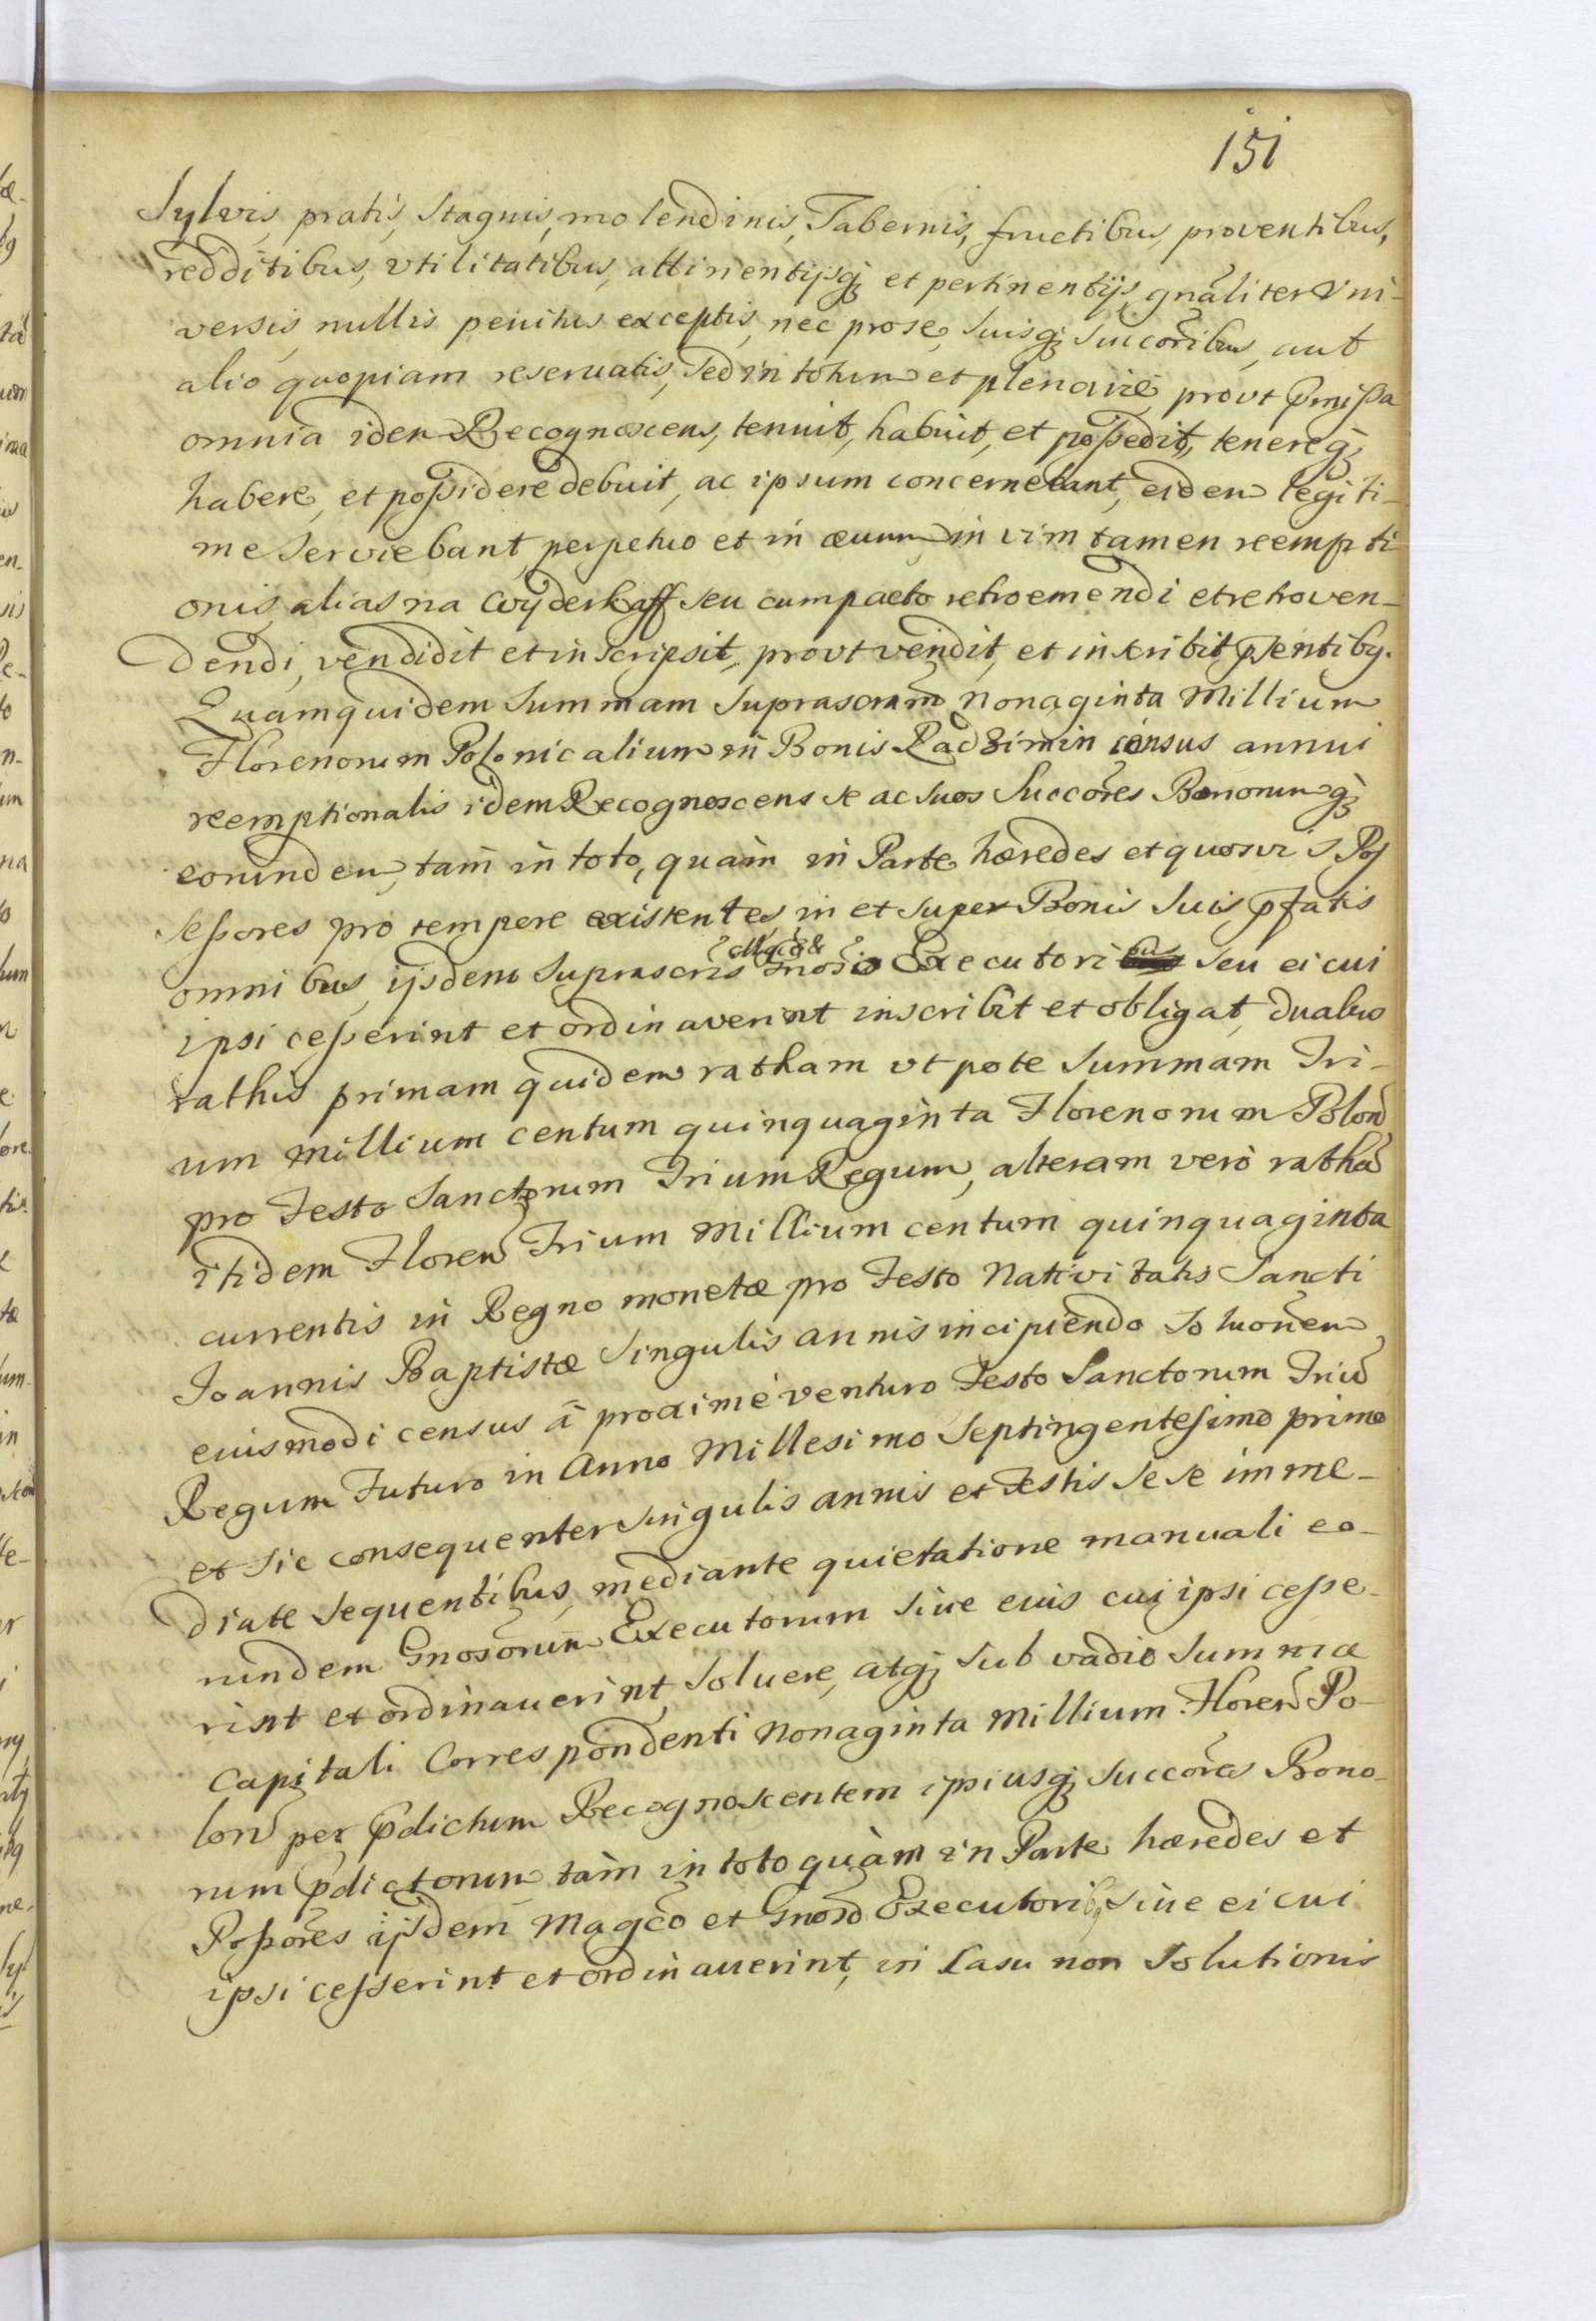 151
Sylvis, pratis, Stagnis, molendinis, Tabernis, fructibus, proventibus,
redditibus, vtilitatibus, attinentijsq; et pertinentijs gnãliter Vni-
versis nullis penitus exceptis, nec pro se, Suisq; Succoribus, aut
alio quopiam reseruatis, Sed in totum et plenariè, prout p̃missa
omnia idem Recognoscens, tenuit, habuit, et possedit, tenereq;
habere, et possidere debuit, ac ipsum concernebant, eidem legiti-
me Serviebant, perpetuo et in æuum in vim tamen reempti
onis, alias na Wyderkaff seu cum pacto retroemendi et retroven-
dendi, vendidit et inscripsit, prout vendit, et inscribit pñtibg.
Quamquidem Summam Suprascrãm Nonaginta Millium
Florenorum Polonicalium in Bonis Radzimin census annui
reemptionalis idem Recognoscens se ac Suos Succores Bonorumq;
eorundem, tam in toto, quàm in Parte hæredes et quosvis Pos
sessores pro tempore existentes in et super Bonis Suis p̃fatis
omnibus, ijsdem Suprascris Mgco & Gnosis Executoribus seu ei cui
ipsi cesserint et ordinaverint inscribit et obligat, duabus
rathis primam quidem ratham vt pote Summam Tri-
um Millium centum quinquaginta Florenorum Polon
pro Festo Sanctorum Trium Regum, alteram verò rathã
itidem Floren Trium Millium centum quinquaginta
currentis in Regno monetæ pro Festo Nativitatis Sancti
Joannis Baptistæ Singulis annis incipiendo Soluonem
euismodi census à proximè venturo Festo Sanctorum Triũ
Regum Futuro in Anno Millesimo Septingentesimo primo
et sic consequenter Singulis annis et Festis Se se imme-
diate Sequentibus, mediante quietatione manuali eo-
rundem Gnosorum Executorum Siue euis cui ipsi cesse-
rint et ordinauerint, Soluere, atq; Sub vadio Summæ
Capitali Correspondenti Nonaginta Millium Floren Po-
lon per p̃dictum Recognoscentem ipiusq; Succores Bono-
rum p̃dictorum tàm in toto quàm in Parte hæredes et
Possores ijsdem Magco et Gnoso Executoribg Siue ei cui
ipsi cesserint et ordinauerint, in Casu non Solutionis